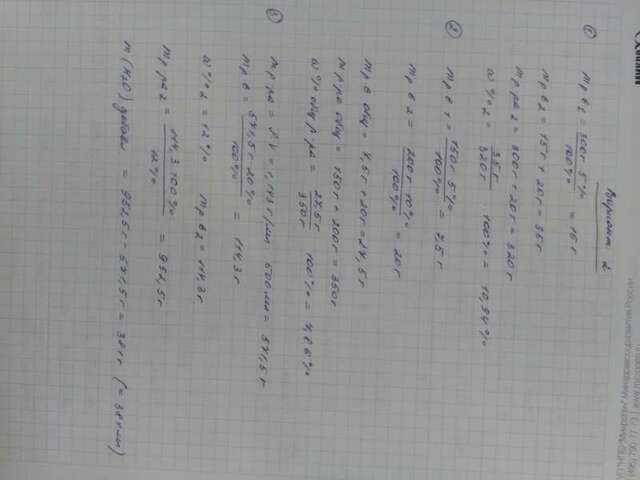 Вариант 2
① m р.в1 = 300г · 5% / 100% = 15г
m р.в2 = 15г + 20г = 35г
m р-ра2 = 300г + 20г = 320г
ω%2 = 35г / 320г · 100% = 10,94%
② m р.в1 = 150г · 5% / 100% = 7,5г
m р.в2 = 200г · 10% / 100% = 20г
m р.в общ = 7,5г + 20г = 27,5г
m р-ра общ = 150г + 200г = 350г
ω% общ р-ра = 27,5г / 350г · 100% = 7,86%
③ m р-ра = = 1,143г/мл · 500мл = 571,5г
m р.в = 571,5г · 20% / 100% = 114,3г
ω%2 = 12% m р.в2 = 114,3г
m р-ра2 = 114,3 · 100% / 12% = 952,5г
m(H2O) добавл = 952,5г - 571,5г = 381г (= 381мл)